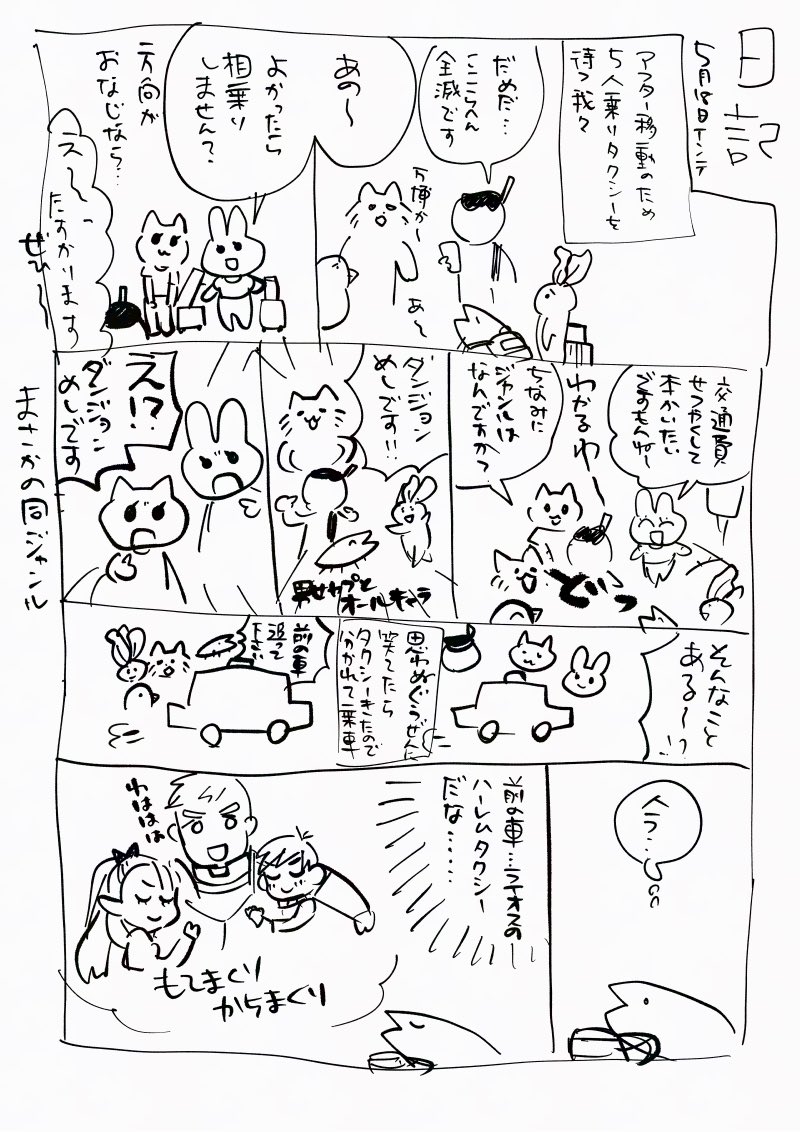 日記
5月18日インテ
アフター移動のため
5人乗りタクシーを
待つ我々
だめだ…
ここらへん
全滅です
万博か〜
あ〜
あの〜
よかったら
相乗り
しません?
方向が
おなじなら…
え〜っ
たすかります
ぜひ〜
交通費
せつやくして
本かいたい
ですもんね〜
わかるわー
どっ
ちなみに
ジャンルは
なんですか?
ダンジョン
めしです!!
オールキャラ
え!?
ダンジョン
めしです
まさかの同ジャンル
そんなこと
ある〜!?
思わぬぐうぜんに
笑ってたら
タクシーきたので
分かれて乗車
前の車
追って
下さい
今ラ…
前の車…ライオスの
ハーレムタクシー
だな……
わははは
もてまくり
からまくり